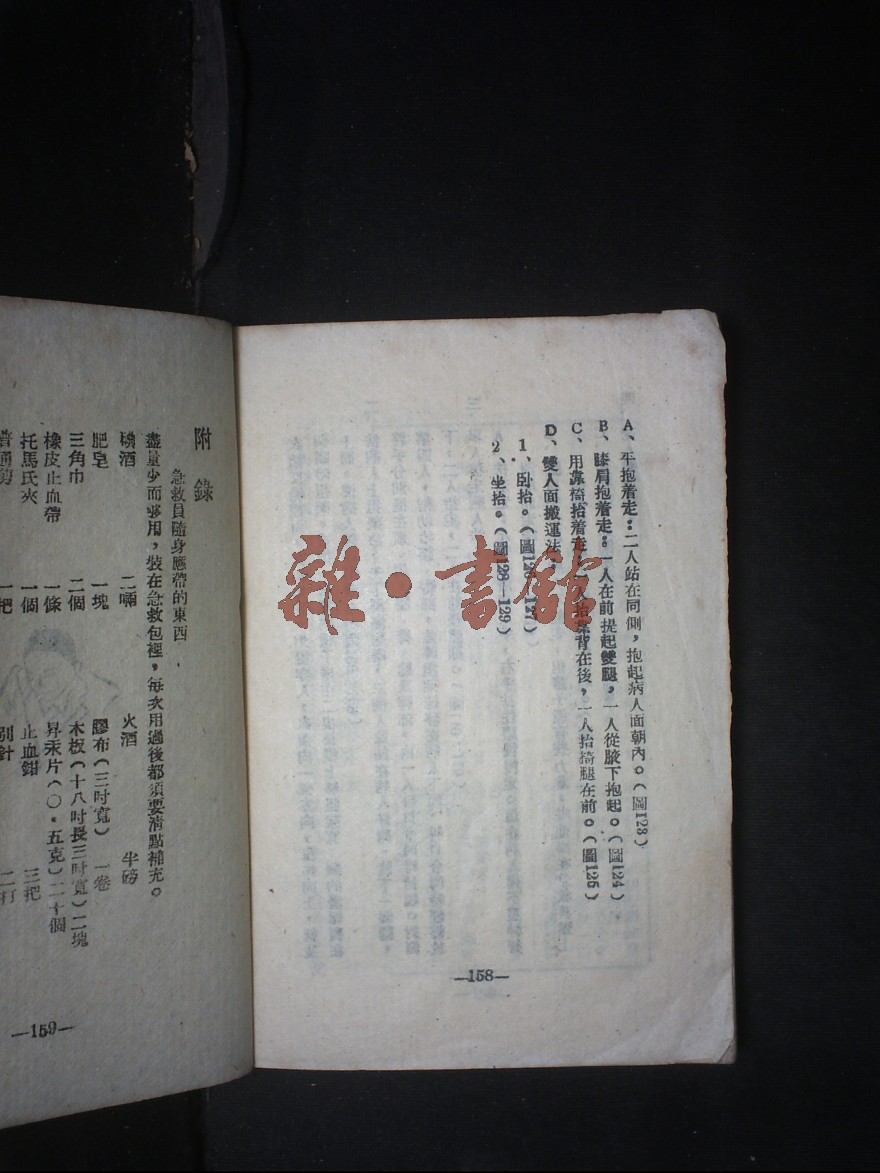 A、平抱着走：二人站在同側，抱起病人面朝內。（圖123）
B、膝肩抱着走：一人在前提起雙腿，一人從腋下抱起。（圖124），
C、用靠椅抬着走：一人抬靠背在後，一人抬椅腿在前。（圖125）
D、雙人面搬運法：
1、卧抬。（圖126—127）
2、坐抬。（圖128—129）
—158—
雜·書館
附錄
急救員隨身應帶的東西
盡量少而够用，裝在急救包裡，每次用過後都須要清點補充。
碘酒 二啢 火酒 半磅
肥皂 一塊 膠布（三吋寬） 一卷
三角巾 二個 木板（十八吋長三吋寬）二塊
橡皮止血帶 一條 昇汞片（〇·五克）二十個
托馬氏夾 一個 止血鉗 三把
普通剪 一把 別針 二打
—159—